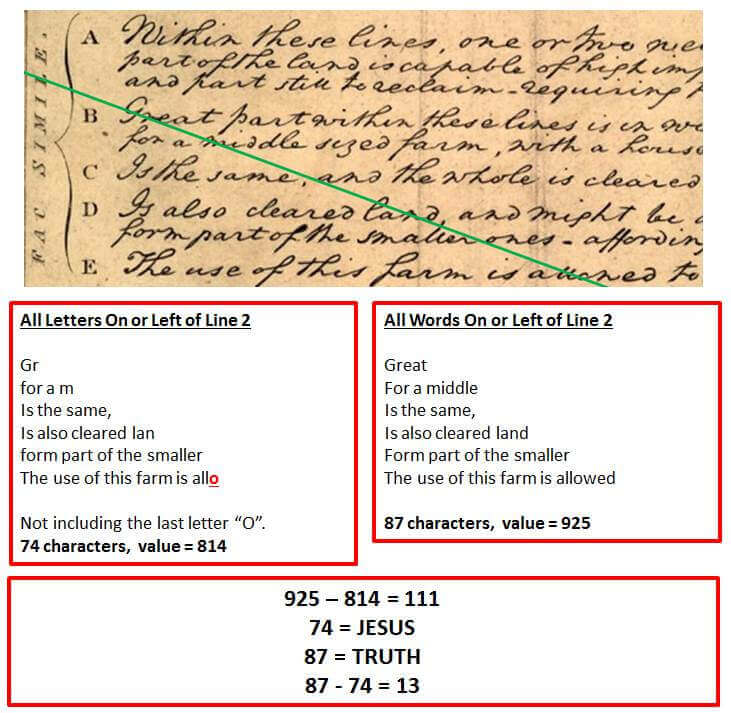 FAC SIMILE.
A Within these lines, one or two
part of the land is capable of high imp
and part still to reclaim - requiring
B Great part within these lines is in
for a middle sized farm, with a hous
C Is the same, and the whole is cleared
D Is also cleared land, and might be
form part of the smaller ones - affordin
E The use of this farm is allowed to
All Letters On or Left of Line 2
Gr
for a m
Is the same,
Is also cleared lan
form part of the smaller
The use of this farm is allo
Not including the last letter “O”.
74 characters, value = 814
All Words On or Left of Line 2
Great
For a middle
Is the same,
Is also cleared land
Form part of the smaller
The use of this farm is allowed
87 characters, value = 925
925 – 814 = 111
74 = JESUS
87 = TRUTH
87 - 74 = 13